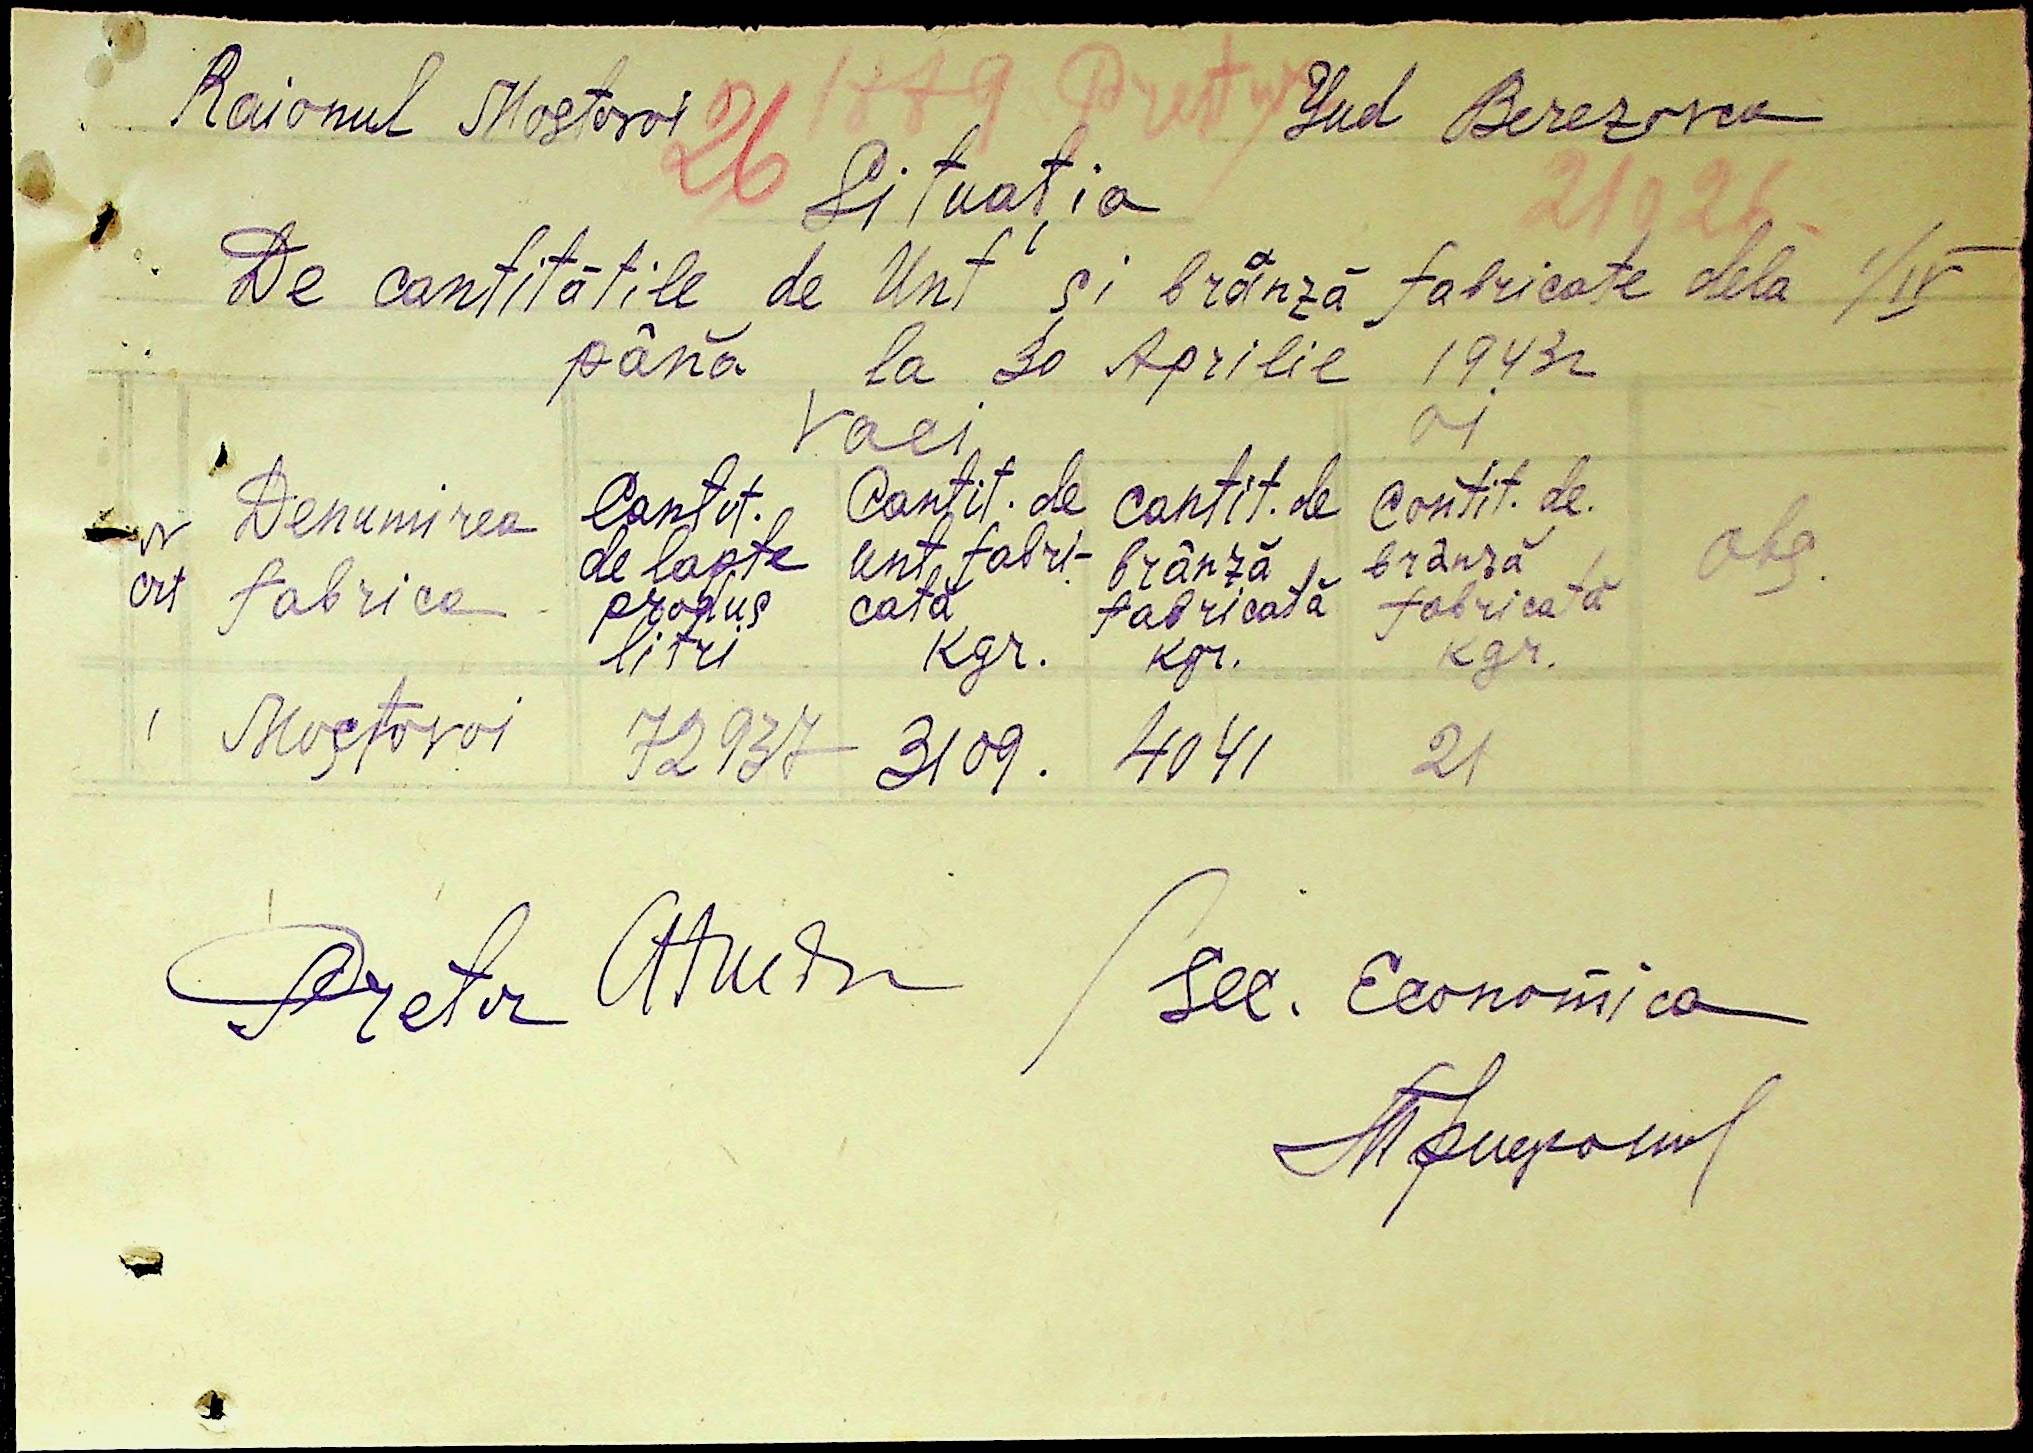 Raionul Mostovoi Jud Berezovca
26 1879
Situația
21926
De cantitātile de Unt și brânză fabricate dela 1/IV
până la 30 Aprilie 1943
Vaci oi
Nr crt Denumirea fabrica Cantit. de lapte produs litri Cantit. de unt fabri-cată Kgr. Cantit. de brânză fabricată kgr. Contit. de brânză fabricată kgr. Obs.
1 Mostovoi 72937 3109. 4041 21
Pretor Sec. Economica